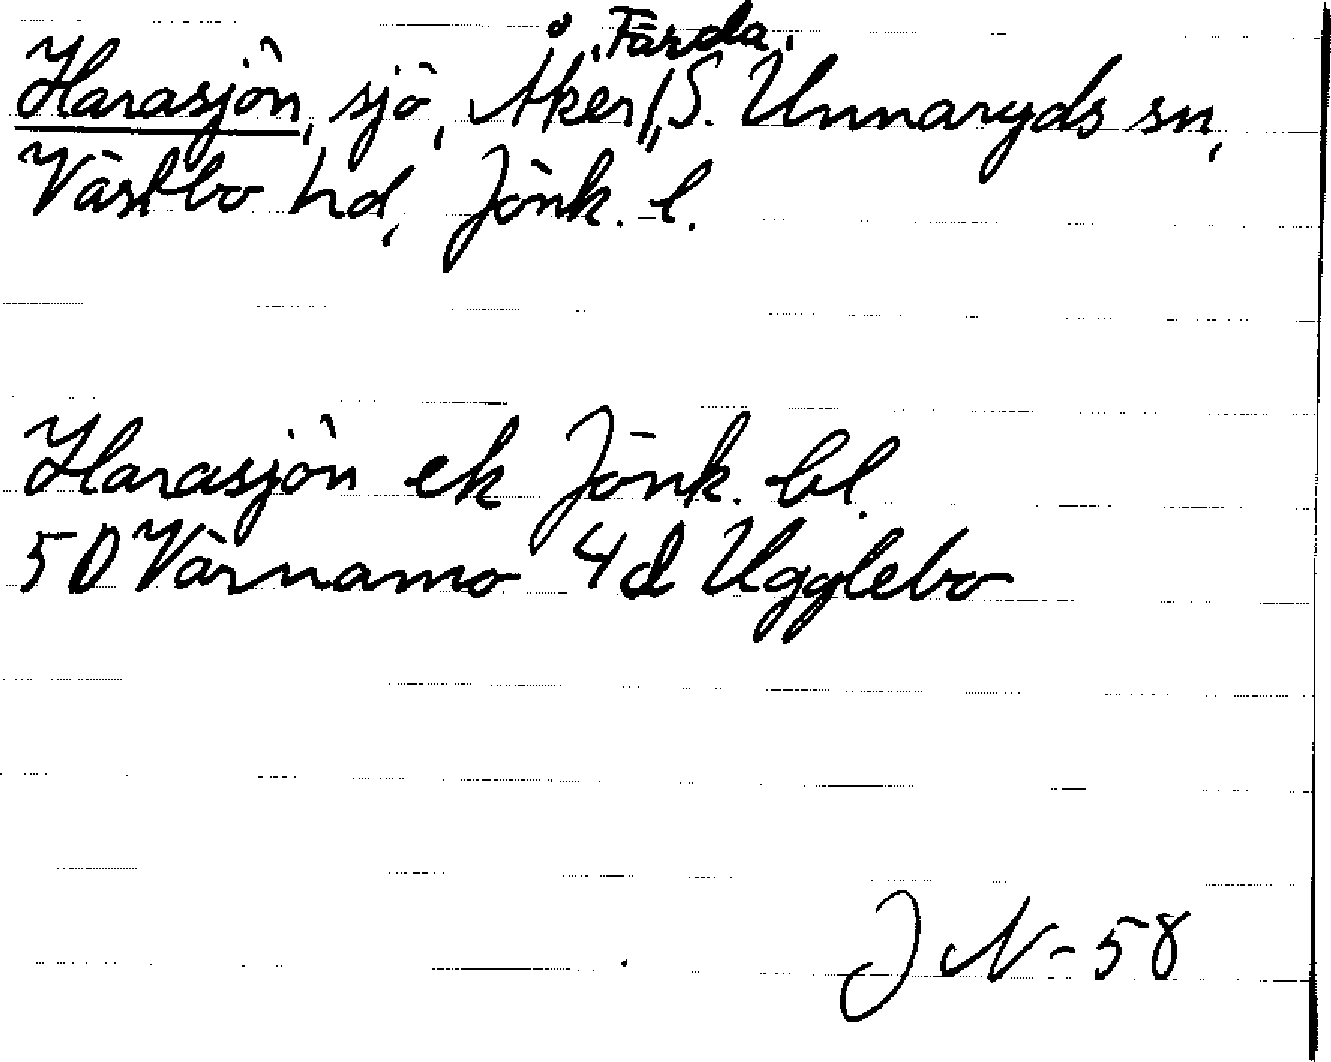 Harasjön, sjö, Åker, Färda, S. Unnaryds sn,
Västbo hd, Jönk. l.
Harasjön ek Jönk. bl.
5D Värnamo 4d Ugglebo
J N-58